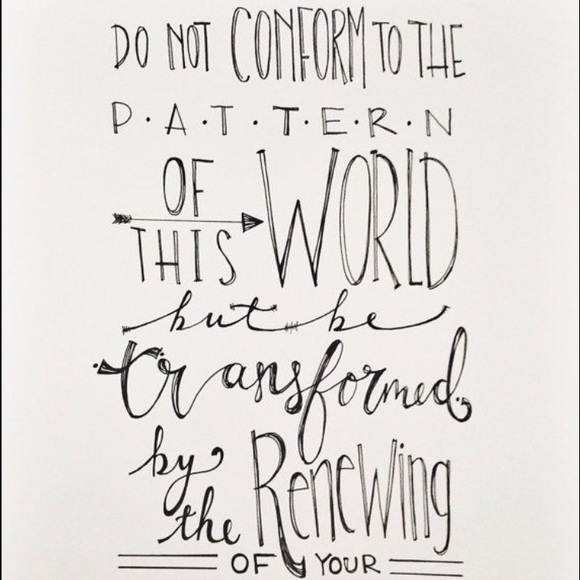 DO NOT CONFORM TO THE
P·A·T·T·E·R·N
OF
THIS WORLD
but be
transformed
by
the Renewing
OF YOUR